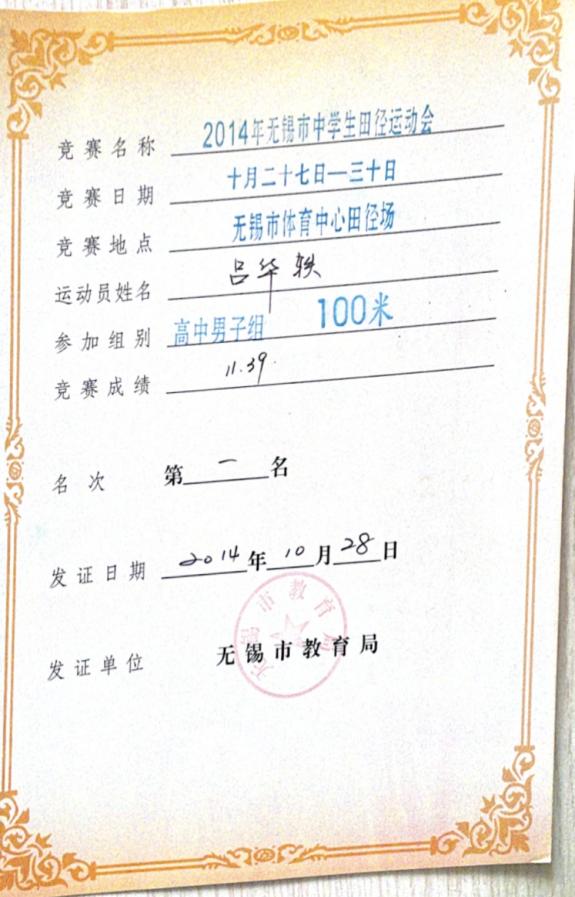 竞赛名称 2014年无锡市中学生田径运动会
竞赛日期 十月二十七日—三十日
竞赛地点 无锡市体育中心田径场
运动员姓名 吕华轶
参加组别 高中男子组 100米
竞赛成绩 11.39
名次 第一名
发证日期 2014年10月28日
发证单位 无锡市教育局
无锡市教育局